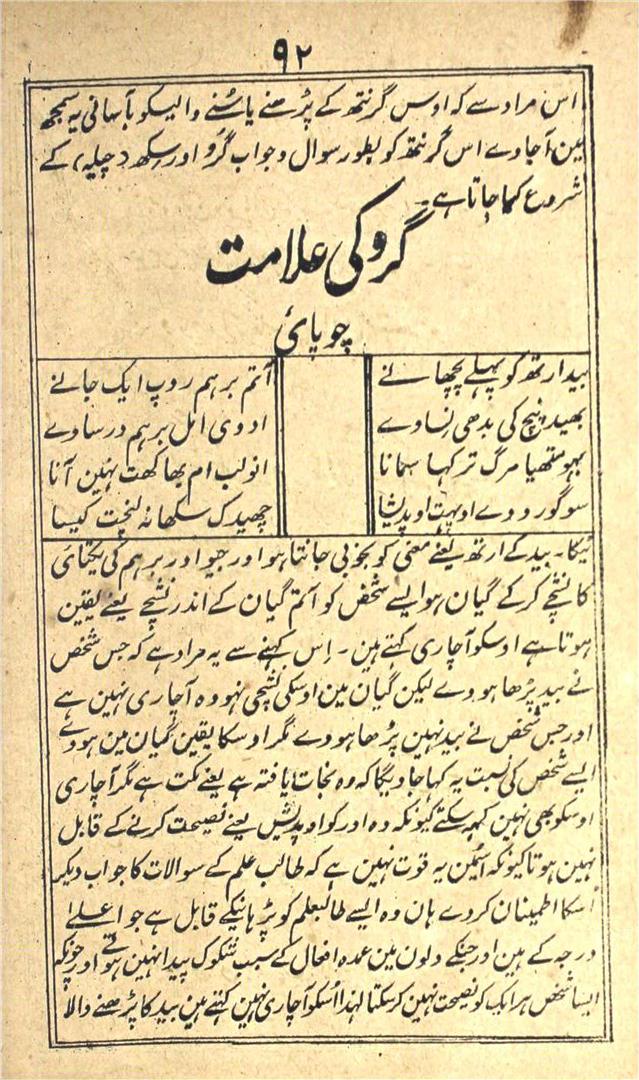 ۹۲
اس مراد سے کہ اوس گرنتھ کے پڑھنے یا سُننے والیکو بآسانی یہ سمجھ
مین آجاوے اس گرنتھ کو بطور سوال و جواب گُرو اور سِکھ (چیلہ) کے
شروع کیا جاتا ہے۔
گرو کی علامت
چوپائ
بید ارتھ کو پہلے پچھانے آتم برہم روپ ایک جانے
بھید پنچ کی بدھی نساوے ادوی امل برہم درساوے
بہو متھیا مرگ ترکہا سمانا انولب ام بھاکھت نہین آنا
سو گورو دے اوپدیشا چھیدک سکھا نہ لنچت کیسا
ٹیکا۔ بید کے ارتھ یعنے معنی کو بخوبی جانتا ہو اور جیو اور برہم کی یکتائی
کا نشچے کر کے گیان ہو ایسے شخص کو آتم گیان کے اندر نشچے یعنے یقین
ہوتا ہے اوسکو آچاری کہتے ہین۔ اِس کہنے سے یہ مراد ہے کہ جس شخص
نے بید پڑھا ہووے لیکن گیان مین اوسکی نشچی نہو وہ آچاری نہین ہے
اور جس شخص نے بید نہین پڑھا ہووے مگر اوسکا یقین گیان مین ہووے
ایسے شخص کی نسبت یہ کہا جاویگا کہ وہ نجات یافتہ ہے یعنے مکت ہے مگر آچاری
اوسکو بھی نہین کہہ سکتے کیونکہ وہ اور کو اوپدیش یعنے نصیحت کرنے کے قابل
نہین ہوتا کیونکہ اسمین یہ قوت نہین ہے کہ طالب علم کے سوالات کا جواب دیکر
اُسکا اطمینان کر دے ہان وہ ایسے طالبعلم کو پڑہانیکے قابل ہے جو اعلےٰ
درجہ کے ہین اور جنکے دلون مین عمدہ افعال کے سبب شکوک پیدا نہین ہوتے اور چونکہ
ایسا شخص ہر ایک کو نصیحت نہین کر سکتا لہذا اُسکو آچاری نہین کہتے ہین بید کا پڑھنے والا